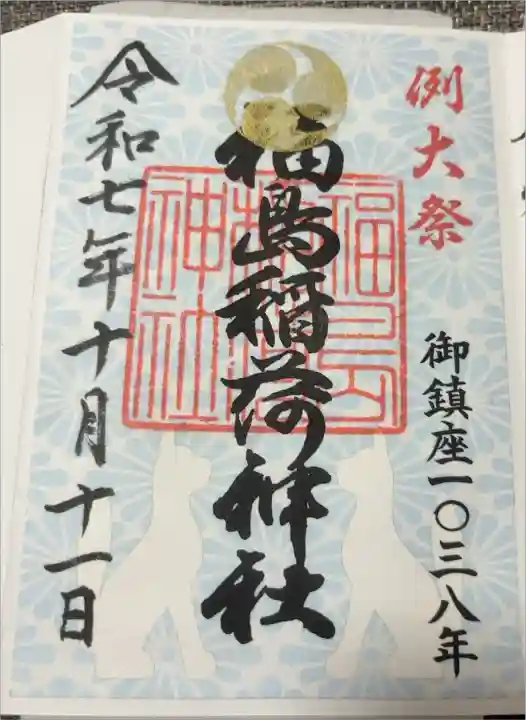 例大祭
御鎮座一〇三八年
福島稲荷神社
福島稲荷神社
令和七年十月十一日